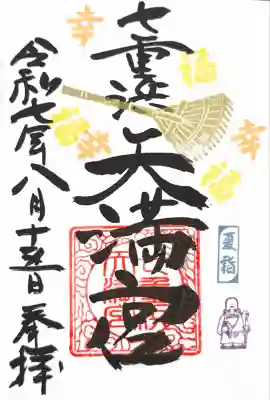 七重浜天満宮
令和七年八月十五日奉拝
夏詣
幸
福
福
幸
福